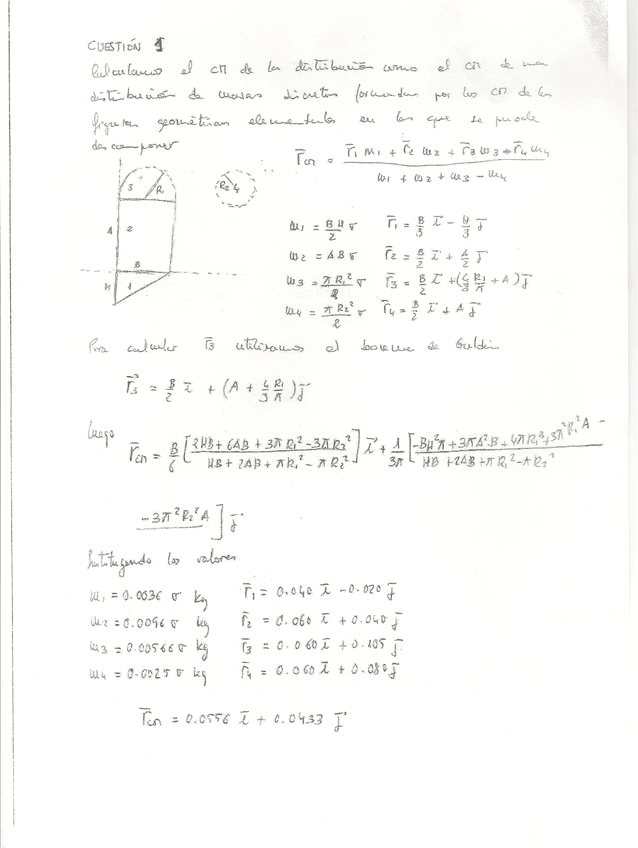 CUESTIÓN 1
Calculamos el CM de la distribución como el CM de una
distribución de masas discretas formadas por los CM de las
figuras geométricas elementales en las que se puede
descomponer
r̄cm = (r̄1 m1 + r̄2 m2 + r̄3 m3 + r̄4 m4) / (m1 + m2 + m3 - m4)
3 R1
R2 4
A 2
B
H 1
m1 = BH/2 σ r̄1 = B/3 ī - H/3 j̄
m2 = AB σ r̄2 = B/2 ī + A/2 j̄
m3 = πR1²/2 σ r̄3 = B/2 ī + (4/3 R1/π + A) j̄
m4 = πR2²/2 σ r̄4 = B/2 ī + A j̄
Para calcular r̄3 utilizamos el teorema de Guldin
r̄3 = B/2 ī + (A + 4/3 R1/π) j̄
Luego r̄cm = B/6 [(2HB + 6AB + 3πR1² - 3πR2²) / (HB + 2AB + πR1² - πR2²)] ī + 1/3π [(-BH²π + 3πA²B + 4πR1³ + 3π²R1²A -
- 3π²R2²A) / (HB + 2AB + πR1² - πR2²)] j̄
Sustituyendo los valores
m1 = 0.0036 σ kg r̄1 = 0.040 ī - 0.020 j̄
m2 = 0.0096 σ kg r̄2 = 0.060 ī + 0.040 j̄
m3 = 0.00566 σ kg r̄3 = 0.060 ī + 0.105 j̄
m4 = 0.0025 σ kg r̄4 = 0.060 ī + 0.080 j̄
r̄cm = 0.0556 ī + 0.0433 j̄